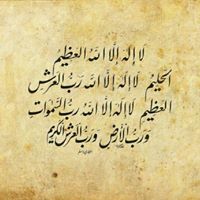 لا إله إلا الله العظيم
الحليم لا إله إلا الله رب العرش
العظيم لا إله إلا الله رب السموات
ورب الأرض ورب العرش الكريم